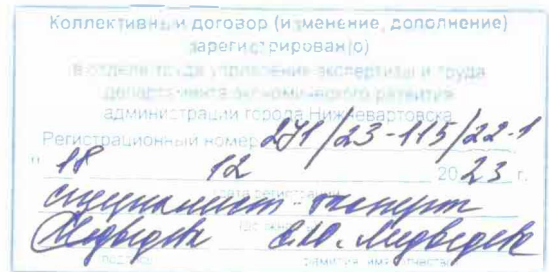 Коллективный договор (изменение, дополнение)
зарегистрирован(о)
в отделе труда управления экспертизы и труда
департамента экономического развития
администрации города Нижневартовска
Регистрационный номер 271/23-115/22-1
"18 12 2023 г.
дата регистрации
специалист-эксперт
Медведек С.Ю. Медведек
подпись фамилия, имя, отчество